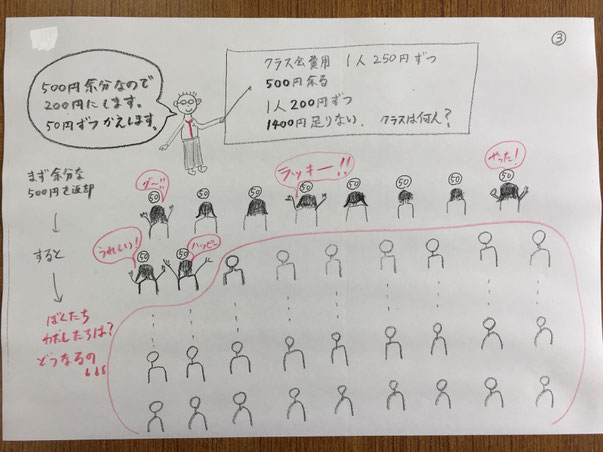 ③
500円余分なので
200円にします。
50円ずつかえします。
クラス会費用 1人250円ずつ
500円余る
1人200円ずつ
1400円足りない、 クラスは何人？
まず余分な
500円を返却
↓
すると
↓
ぼくたち
わたしたちは？
どうなるの
グー!!
ラッキー!!
やった！
50 50 50 50 50 50 50 50
うれしい！
ハッピー
50 50